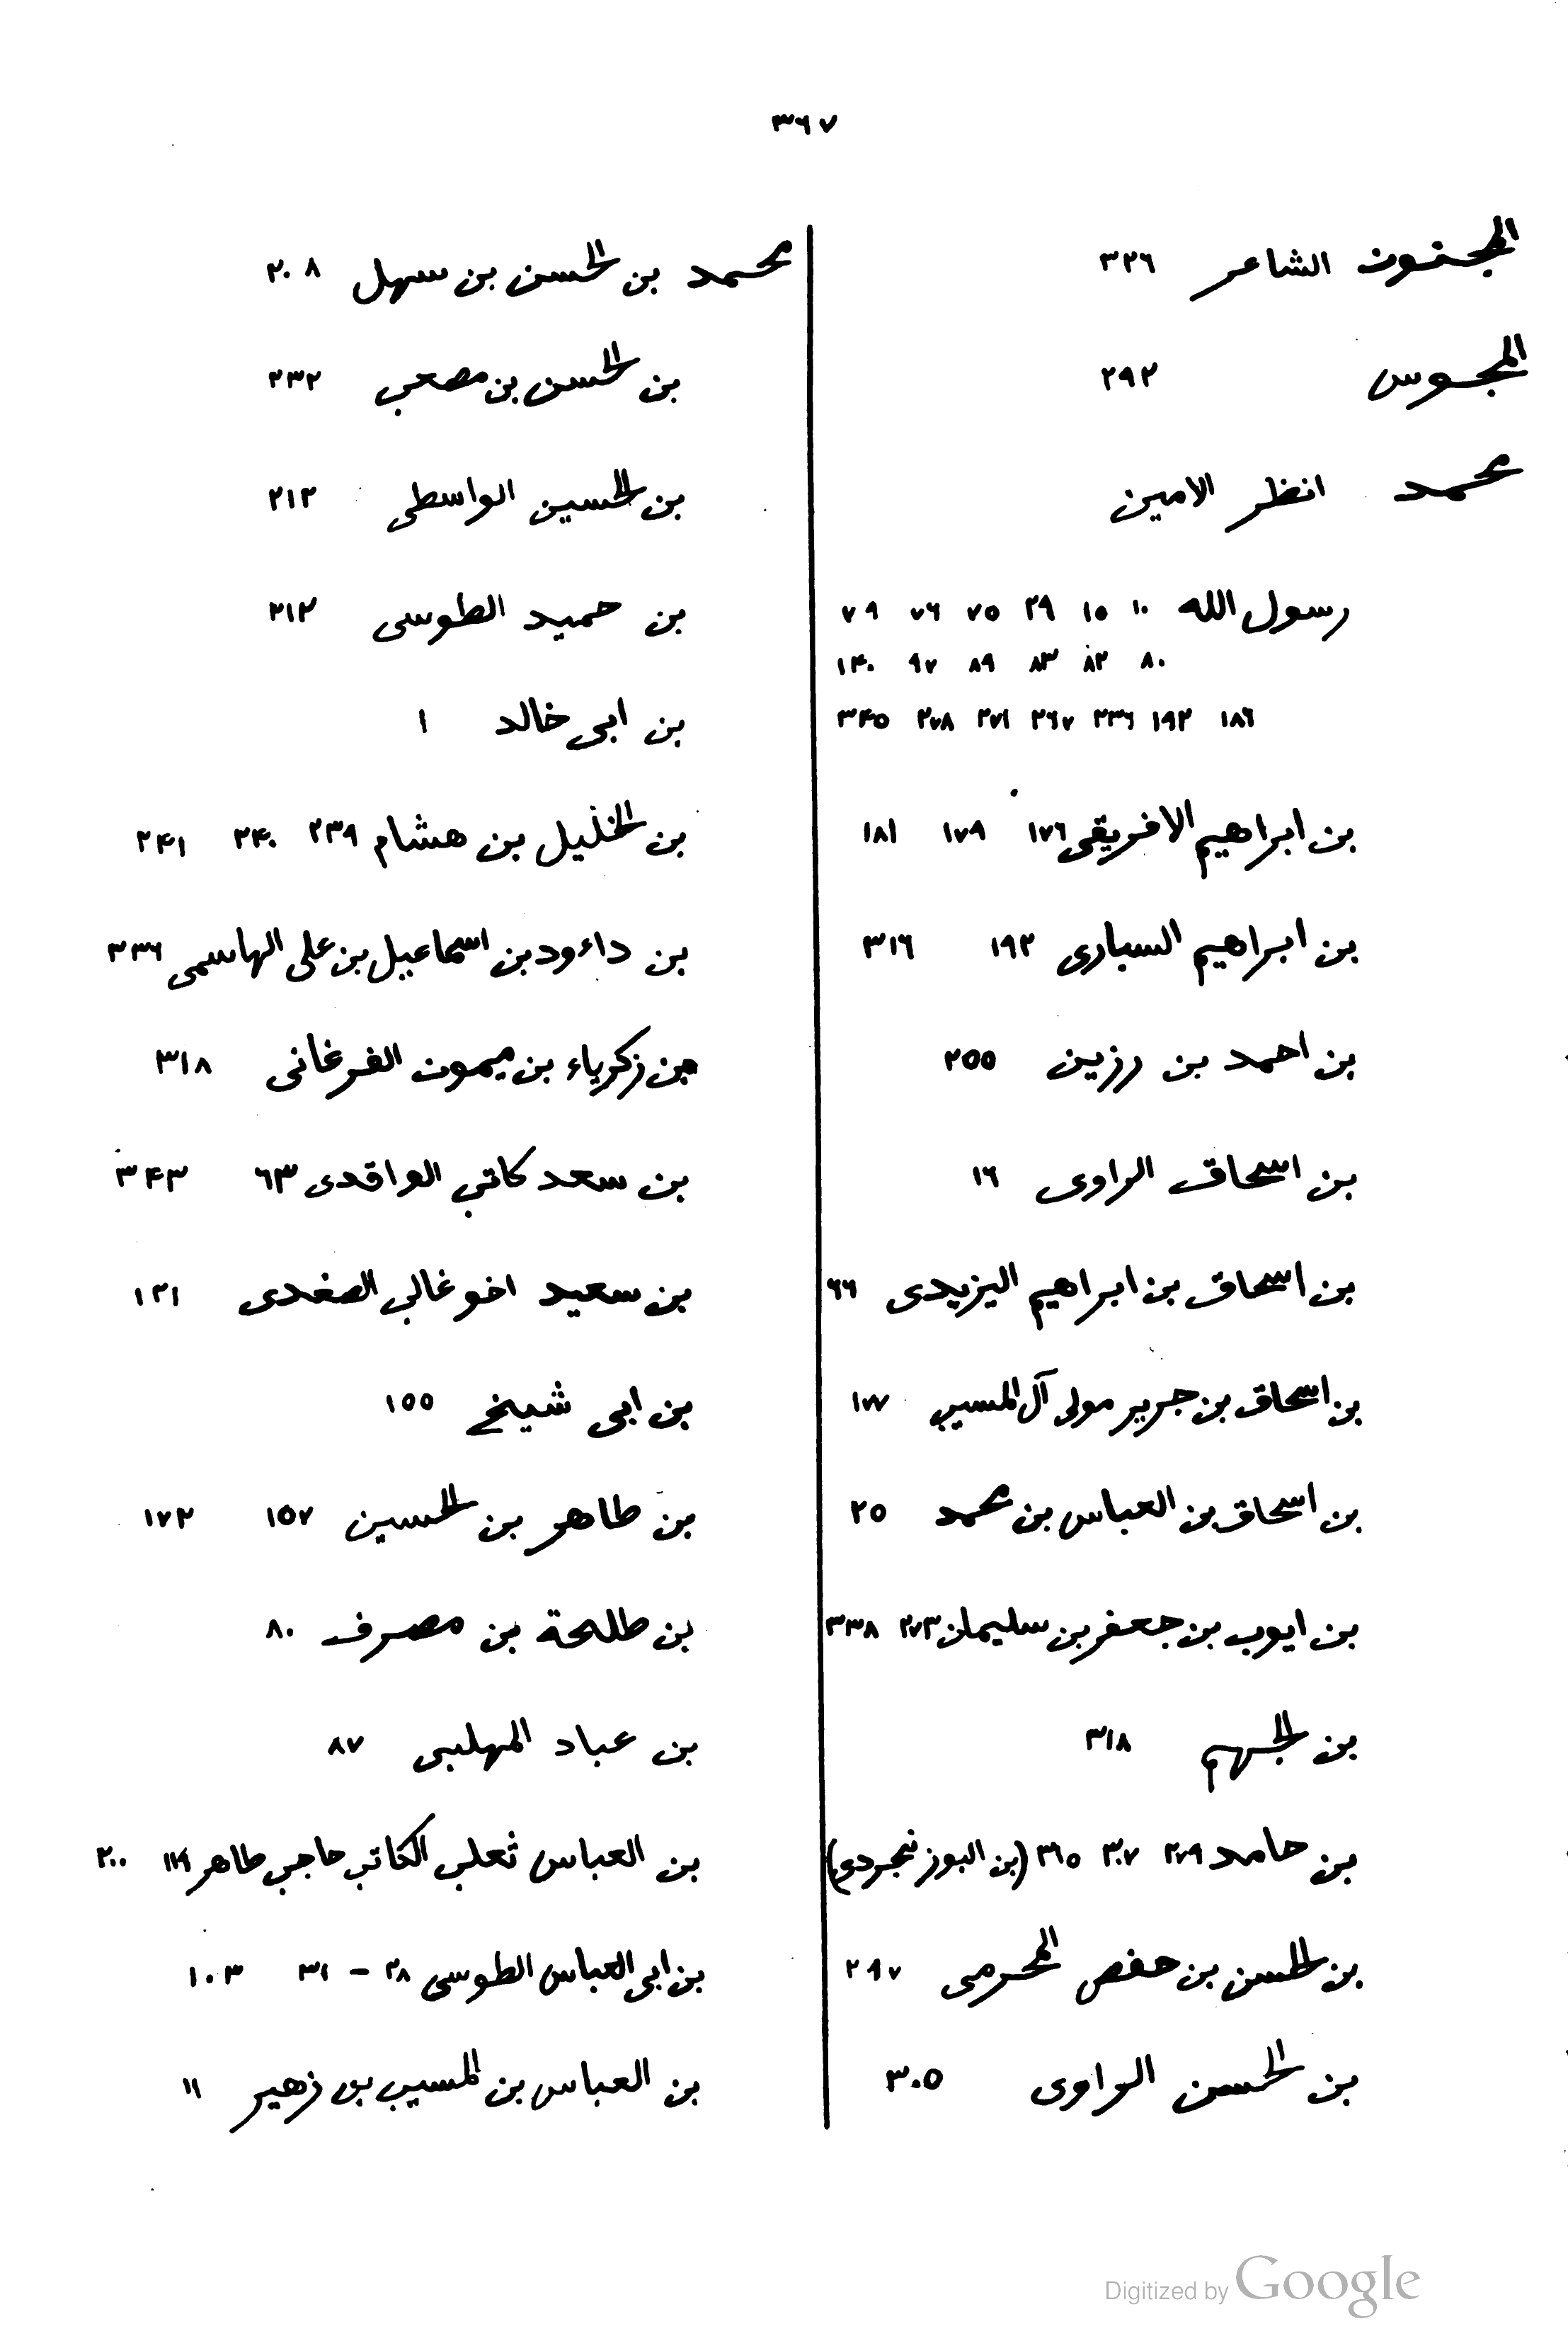 ٣٦٧
المجنون الشاعر ٣٢٦
المجوس ٢٩٢
محمد انظر الامين
رسول الله ١٠ ١٥ ٢٩ ٧٥ ٧٦ ٧٩
٨٠ ٨٢ ٨٣ ٨٩ ٩٧ ١٤٠
١٨٦ ١٩٢ ٢٣٦ ٢٦٧ ٢٧١ ٢٧٨ ٣٤٥
بن ابراهيم الافريقى ١٧٦ ١٧٩ ١٨١
بن ابراهيم السيارى ١٩٢ ٣١٦
بن احمد بن رزين ٢٥٥
بن اسحاق الراوى ١٦
بن اسحاق بن ابراهيم اليزيدى ٦٦
بن اسحاق بن جرير مولى آل المسيب ١٧٧
بن اسحاق بن العباس بن محمد ٢٥
بن ايوب بن جعفر بن سليمان ٢٧٣ ٣٣٨
بن الجهم ٣١٨
بن حامد ٢٧٩ ٣٠٧ ٣٦٥ (بن البوزنجردى)
بن الحسن بن حفص المخرمى ٢٩٧
بن الحسن الراوى ٣٠٥
محمد بن الحسن بن سهل ٢٠٨
بن الحسن بن مصعب ٢٣٢
بن الحسين الواسطى ٢١٢
بن حميد الطوسى ٢١٢
بن ابى خالد ١
بن الخليل بن هشام ٢٣٩ ٢٤٠ ٢٤١
بن داءود بن اسماعيل بن على الهاسمى ٣٣٦
بن زكرياء بن ميمون الفرغانى ٣١٨
بن سعد كاتب الواقدى ٦٣ ٣٤٣
بن سعيد اخو غالب الصغدى ١٢١
بن ابى شيخ ١٥٥
بن طاهر بن الحسين ١٥٧ ١٧٢
بن طلحة بن مصرف ٨٠
بن عباد المهلبى ٨٧
بن العباس ثعلب الكاتب حاجب طاهر ٢٠٠
بن ابى العباس الطوسى ٢٨ - ٣١ ١٠٣
بن العباس بن المسيب بن زهير ١١
Digitized by Google